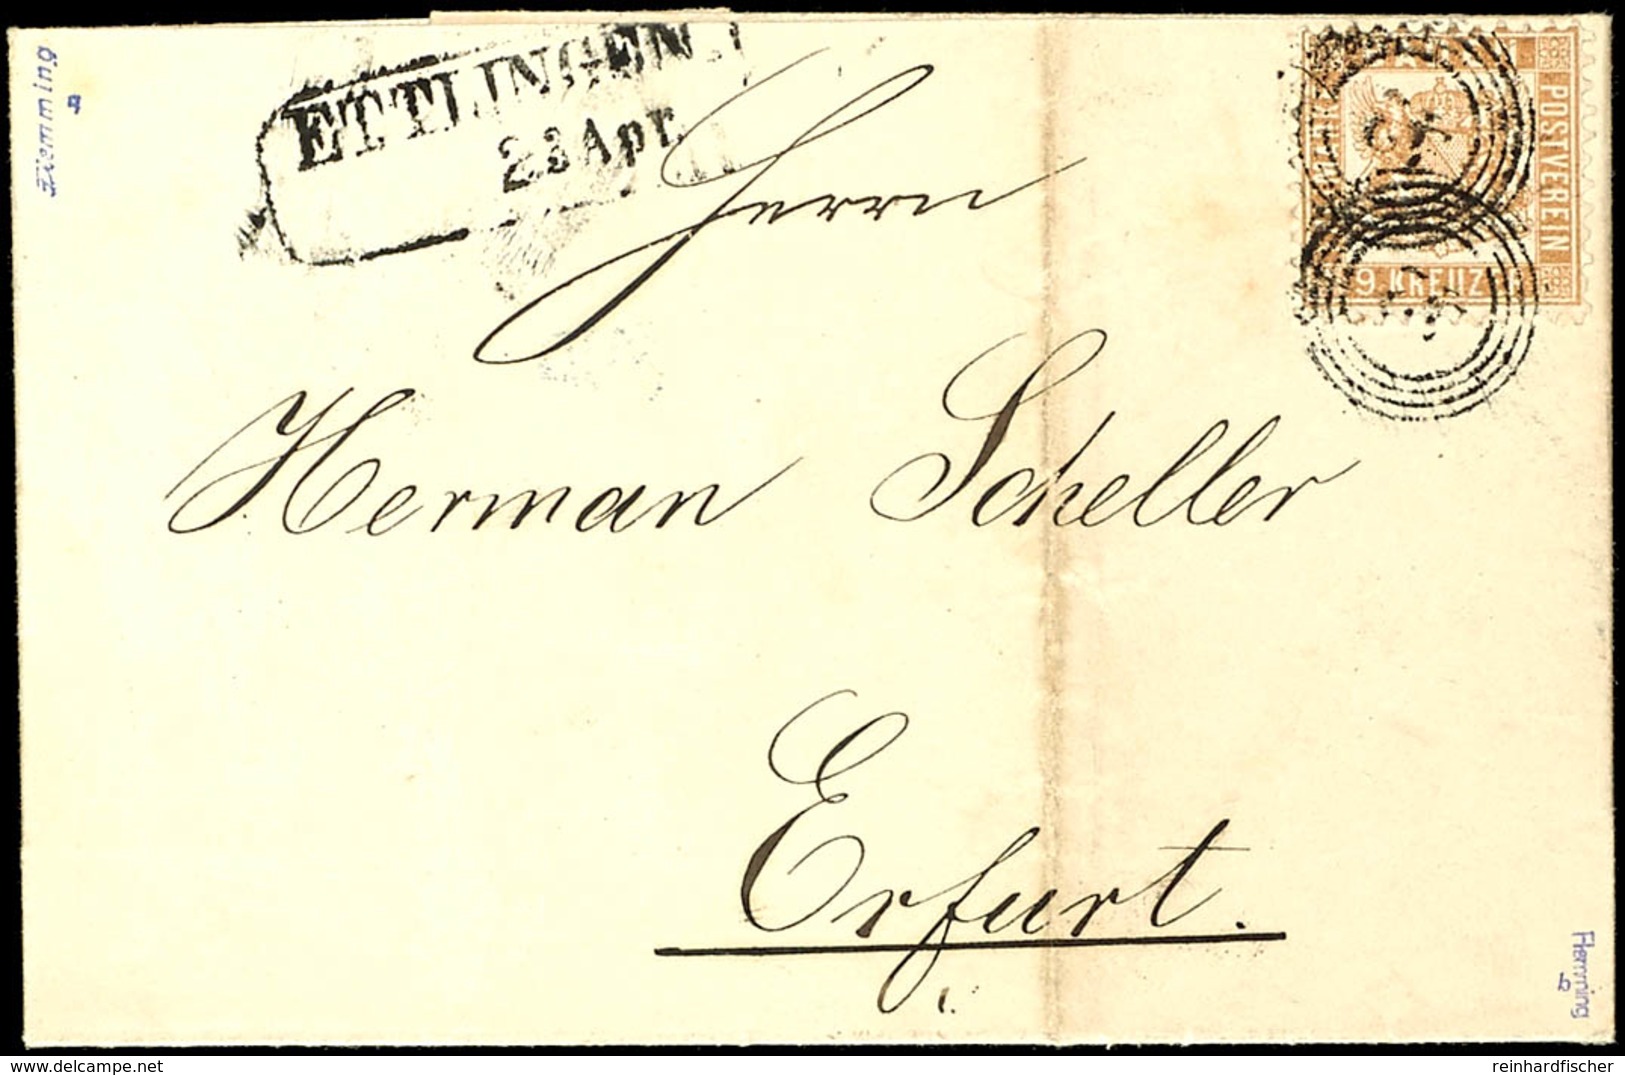 ETTLINGEN
23 Apr.
Flemming
a
POSTVEREIN
9. KREUZ
Herrn
Herman Scheller
Erfurt.
Flemming
b
https://www.delcampe.net
reinhardfischer